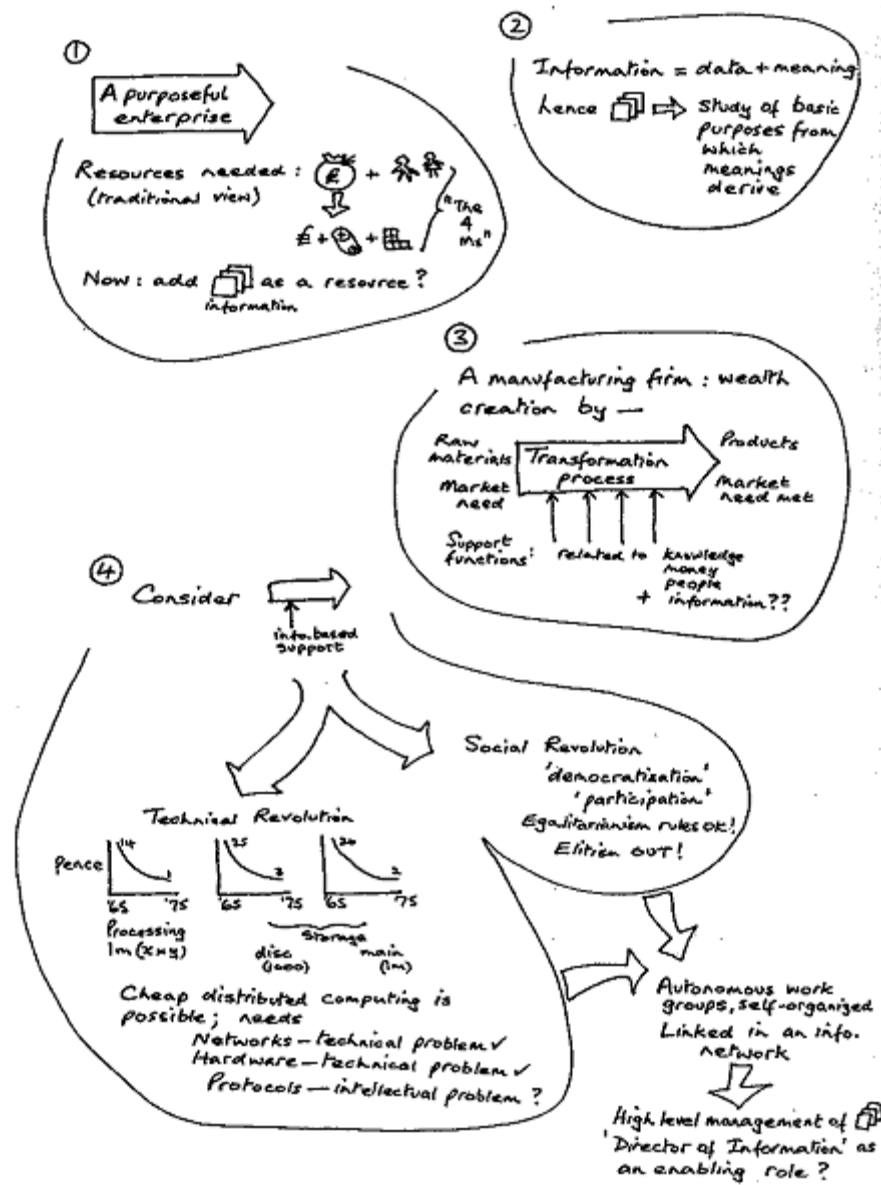 ①
A purposeful
enterprise
Resources needed :
(traditional view)
£
+
£ + + 
"The
4
Ms"
Now : add as a resource ?
information
②
Information = data + meaning
hence
study of basic
purposes from
which
meanings
derive
③
A manufacturing firm : wealth
creation by —
Raw
materials
Market
need
Transformation
process
Products
Market
need met
Support
functions :
related to
knowledge
money
people
+ information ??
④
Consider
info. based
support
Social Revolution
'democratisation'
'participation'
Egalitarianism rules OK!
Elitism OUT!
Technical Revolution
Pence
14
1
'65 '75
25
3
'65 '75
20
2
'65 '75
Processing
1m (x+y)
storage
disc
(1000)
main
(1m)
Cheap distributed computing is
possible; needs
Networks – technical problem ✓
Hardware – technical problem ✓
Protocols – intellectual problem ?
Autonomous work
groups, self-organized
Linked in an info.
network
High level management of
'Director of Information' as
an enabling role ?